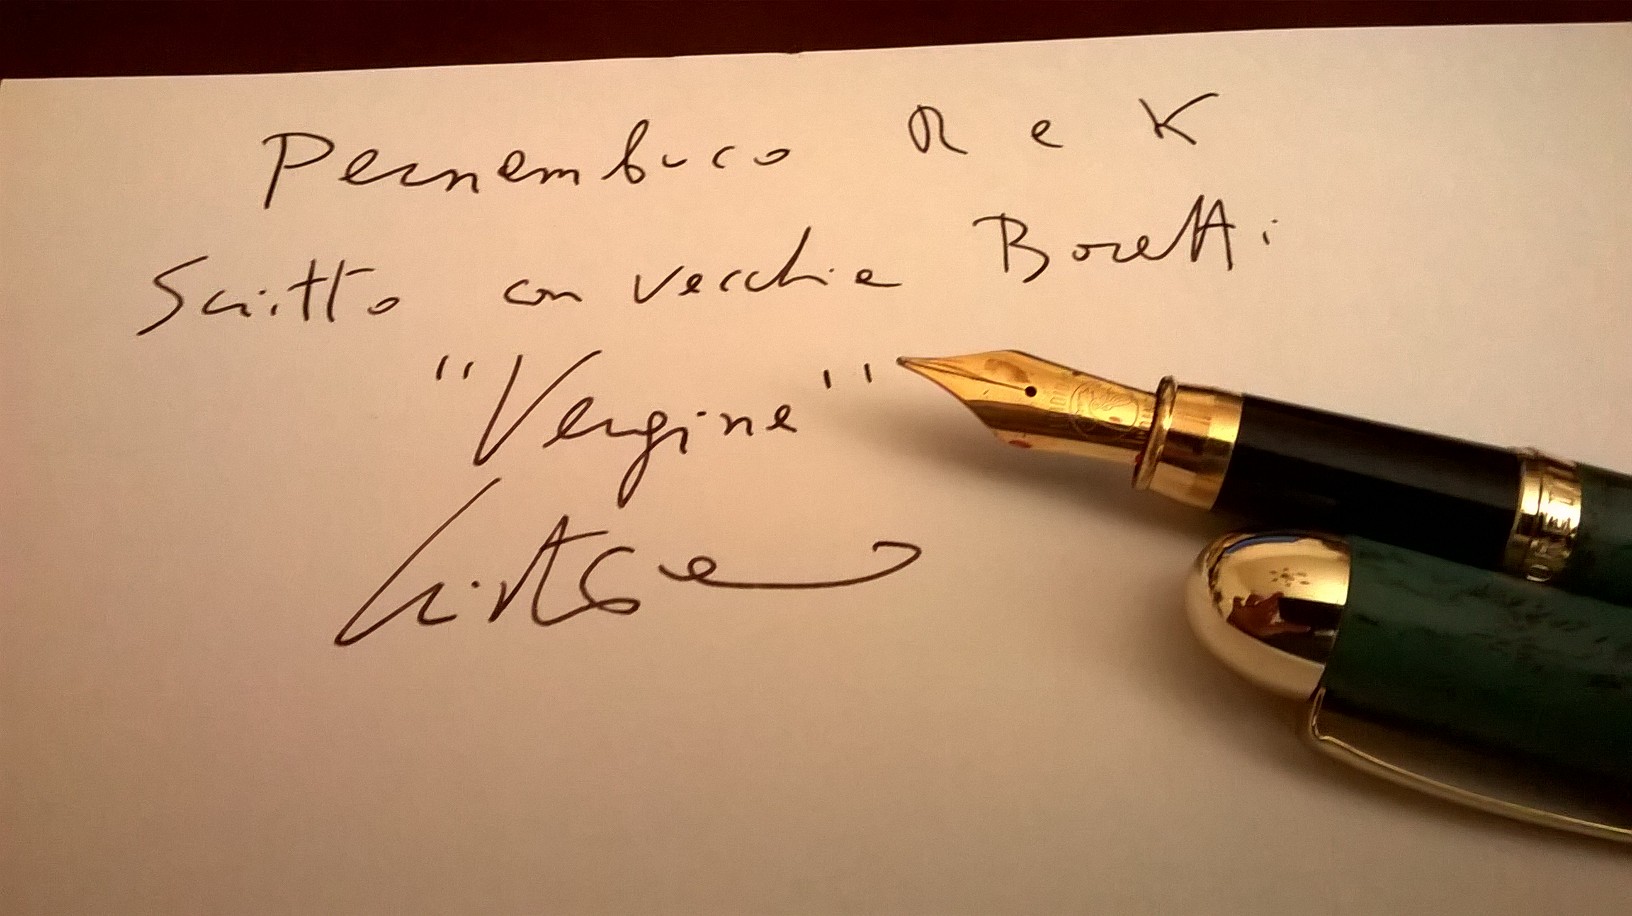 Pernembuco R e K
Scritto con vecchia Boretti
"Vergine"